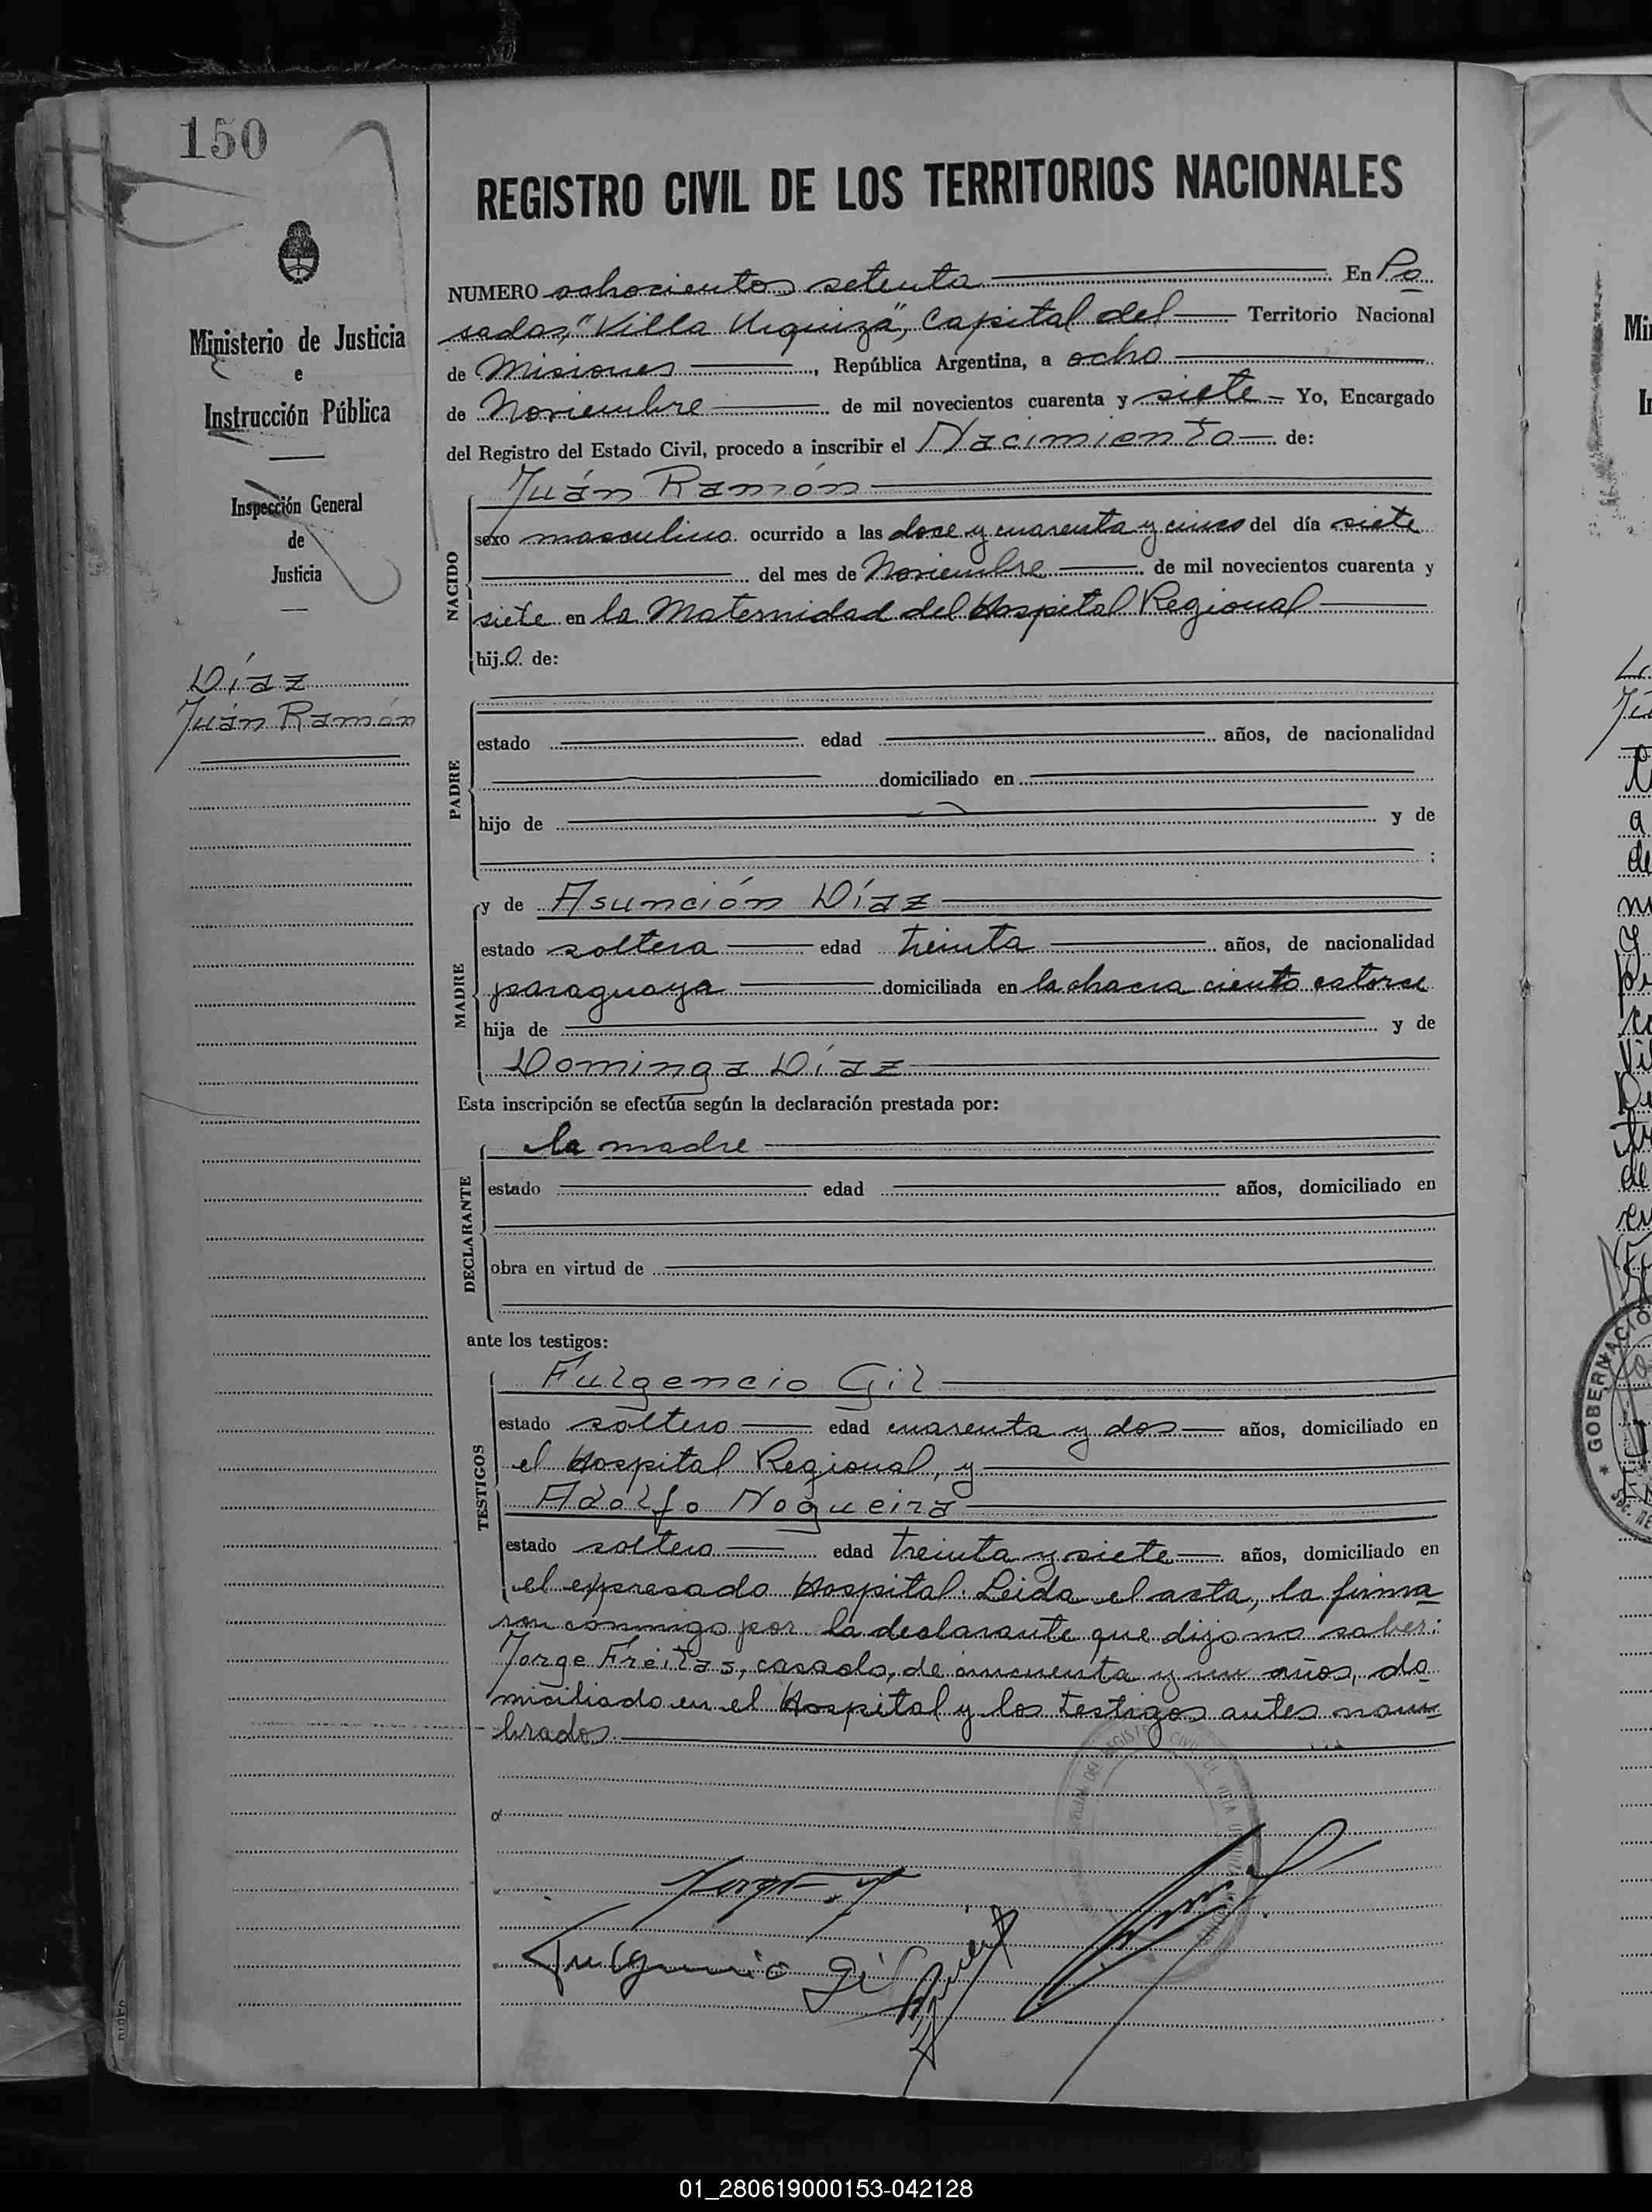 150
Ministerio de Justicia
e
Instrucción Pública
Inspección General
de
Justicia
Díaz
Juán Ramón
REGISTRO CIVIL DE LOS TERRITORIOS NACIONALES
NUMERO ochocientos setenta En Po
sadas, "Villa Urquiza", Capital del Territorio Nacional
de Misiones, República Argentina, a ocho
de Noviembre de mil novecientos cuarenta y siete Yo, Encargado
del Registro del Estado Civil, procedo a inscribir el Nacimiento de:
NACIDO
Juán Ramón
sexo masculino ocurrido a las doce y cuarenta y cinco del día siete
del mes de Noviembre de mil novecientos cuarenta y
siete en la Maternidad del Hospital Regional
hijo de:
PADRE
estado edad años, de nacionalidad
domiciliado en
hijo de y de
;
MADRE
y de Asunción Díaz
estado soltera edad treinta años, de nacionalidad
paraguaya domiciliada en la chacra ciento catorce
hija de y de
Dominga Díaz
Esta inscripción se efectúa según la declaración prestada por:
DECLARANTE
la madre
estado edad años, domiciliado en
obra en virtud de
ante los testigos:
TESTIGOS
Fulgencio Gil
estado soltero edad cuarenta y dos años, domiciliado en
el Hospital Regional, y
Adolfo Nogueira
estado soltero edad treinta y siete años, domiciliado en
el expresado Hospital. Leida el acta, la firma
ron conmigo por la declarante que dijo no saber:
Jorge Freitas, casado, de cincuenta y un años, do
miciliado en el Hospital y los testigos antes nom
brados.
Fulgencio Gil
GOBERNACIO
01_280619000153-042128